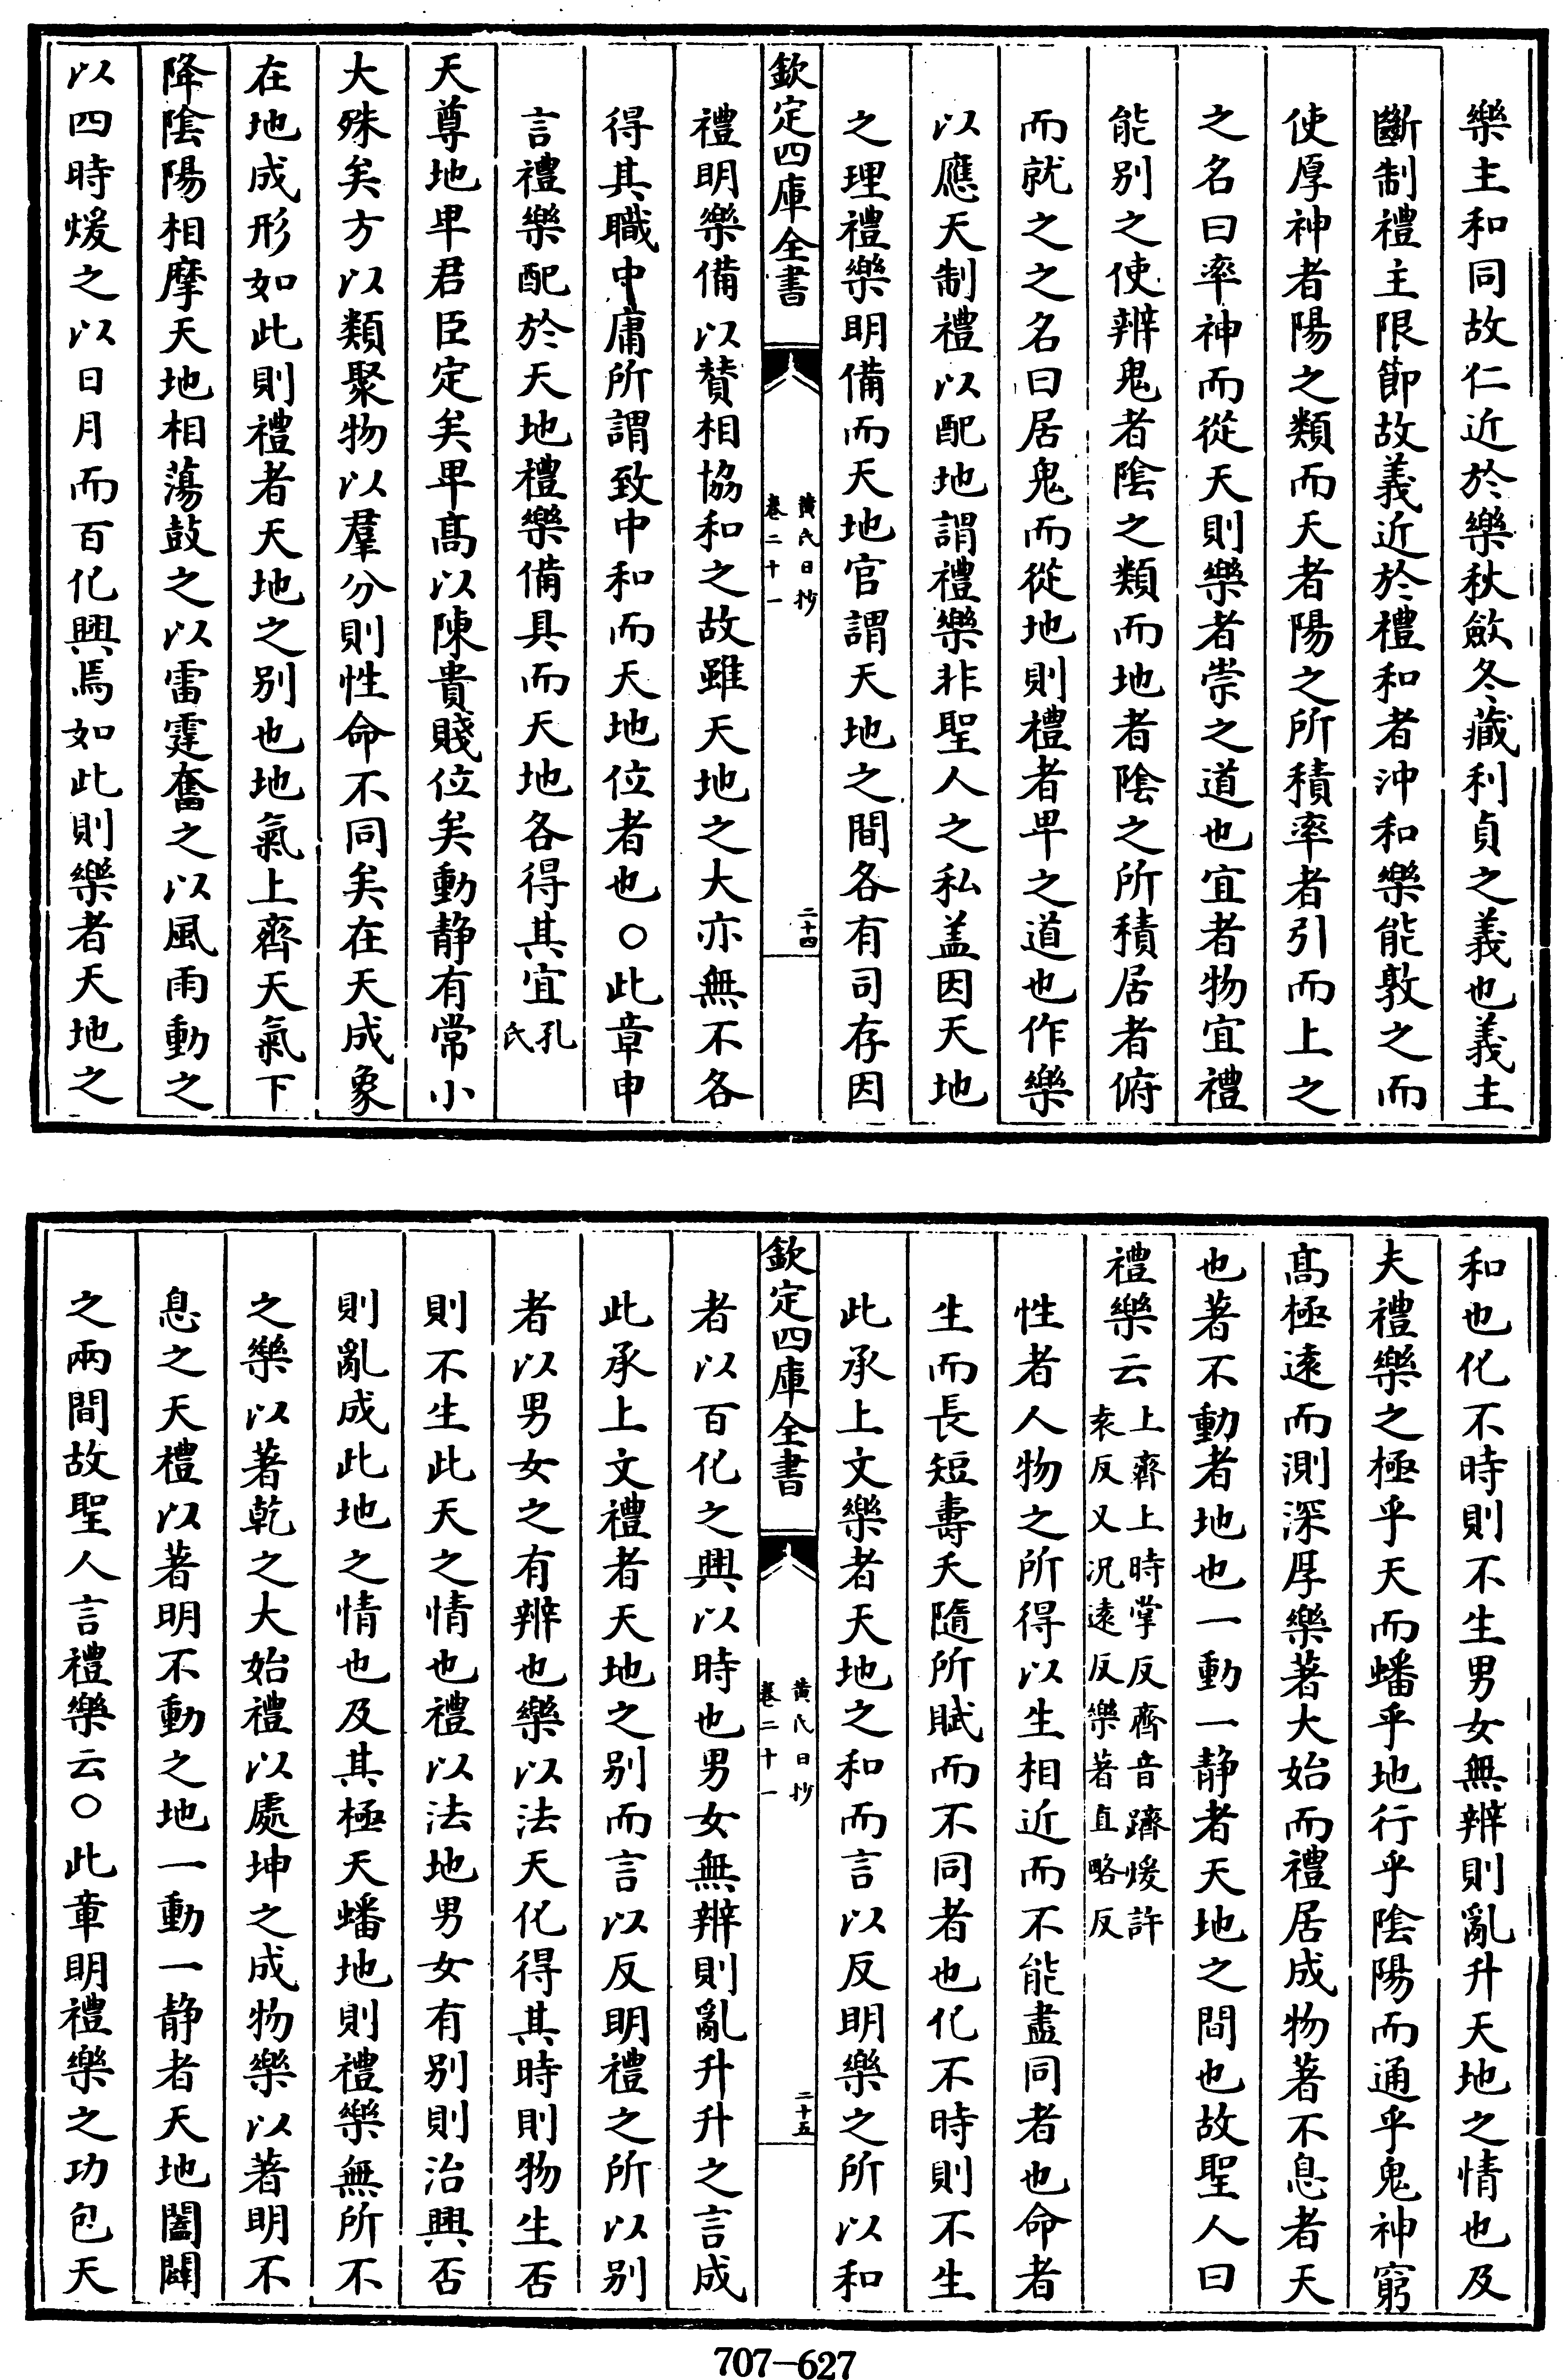 樂主和同故仁近於樂秋斂冬藏利貞之義也義主
斷制禮主限節故義近於禮和者沖和樂能敦之而
使厚神者陽之類而天者陽之所積率者引而上之
之名曰率神而從天則樂者崇之道也宜者物宜禮
能别之使辨鬼者陰之類而地者陰之所積居者俯
而就之之名曰居鬼而從地則禮者卑之道也作樂
以應天制禮以配地謂禮樂非聖人之私盖因天地
之理禮樂明備而天地官謂天地之間各有司存因
欽定四庫全書
黄氏日抄
卷二十一
二十四
禮明樂備以賛相協和之故雖天地之大亦無不各
得其職中庸所謂致中和而天地位者也○此章申
言禮樂配於天地禮樂備具而天地各得其宜孔
氏
天尊地卑君臣定矣卑髙以陳貴賤位矣動静有常小
大殊矣方以類聚物以羣分則性命不同矣在天成象
在地成形如此則禮者天地之别也地氣上齊天氣下
降陰陽相摩天地相蕩鼓之以雷霆奮之以風雨動之
以四時煖之以日月而百化興焉如此則樂者天地之
和也化不時則不生男女無辨則亂升天地之情也及
夫禮樂之極乎天而蟠乎地行乎陰陽而通乎鬼神窮
髙極逺而測深厚樂著大始而禮居成物著不息者天
也著不動者地也一動一静者天地之間也故聖人曰
禮樂云
上齊上時掌反齊音躋煖許
袁反又况逺反樂著直略反
性者人物之所得以生相近而不能盡同者也命者
生而長短壽夭隨所賦而不同者也化不時則不生
此承上文樂者天地之和而言以反明樂之所以和
欽定四庫全書
黄氏日抄
卷二十一
二十五
者以百化之興以時也男女無辨則亂升升之言成
此承上文禮者天地之别而言以反明禮之所以别
者以男女之有辨也樂以法天化得其時則物生否
則不生此天之情也禮以法地男女有别則治興否
則亂成此地之情也及其極天蟠地則禮樂無所不
之樂以著乾之大始禮以處坤之成物樂以著明不
息之天禮以著明不動之地一動一静者天地闔闢
之兩間故聖人言禮樂云○此章明禮樂之功包天
707-627